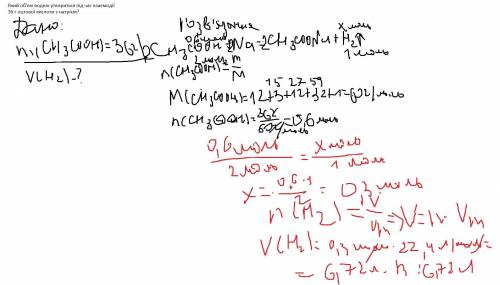 Який об'єм водню утвориться під час взаємодії
36 г оцтової кислоти з натрієм?
Дано:
Розв'язання
m(CH3COOH)=36г
V(H2)-?
0,6 моль x моль
2CH3COOH+2Na=2CH3COONa+H2↑
2 моль 1 моль
n(CH3COOH)=m/M
M(CH3COOH)=12+3+12+32+1=60г/моль
n(CH3COOH)=36г/60г/моль=0,6моль
0,6моль/2моль=xмоль/1моль
x=0,6·1/2=0,3моль
n(H2)=V/Vm=>V=n·Vm
V(H2)=0,3моль·22,4л/моль=
=6,72л. В:6,72л